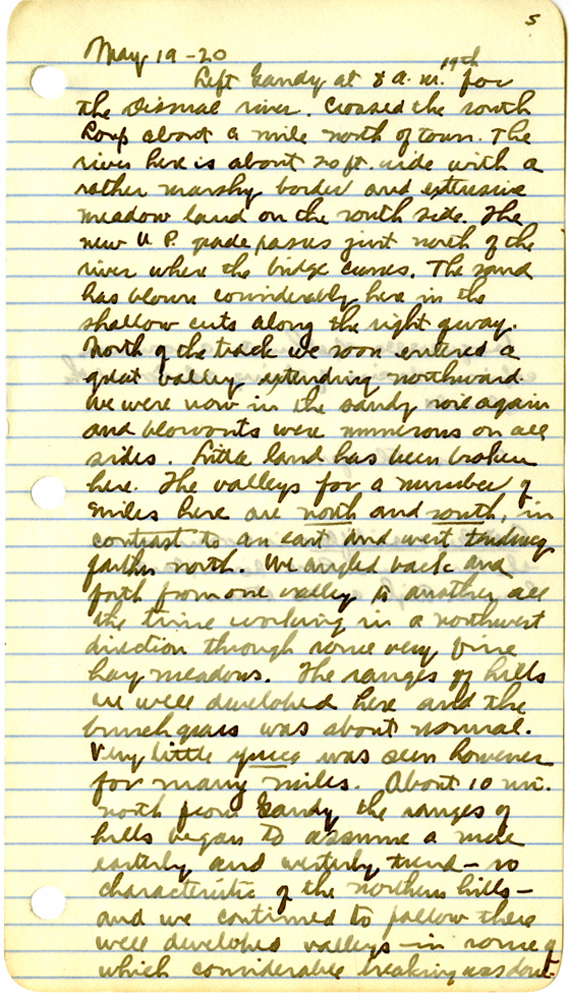 5
May 19-20
Left Gandy at 8 a.m. 19th for
the Dismal river. Crossed the south
Loup about a mile north of town. The
river here is about 20 ft. wide with a
rather marshy border and extensive
meadow land on the south side. The
new U P. grade passes just north of the
river where the bridge crosses. The sand
has blown considerably here in the
shallow cuts along the right of way.
North of the track we soon entered a
great valley extending northward.
We were now in the sandy soil again
and blowouts were numerous on all
sides. Little land has been broken
here. The valleys for a number of
miles here are north and south, in
contrast to an east and west tendency
farther north. We angled back and
forth from one valley to another all
the time working in a northwest
direction through some very fine
hay meadows. The ranges of hills
are well developed here and the
bunch grass was about normal.
Very little yucca was seen however
for many miles. About 10 mi.
north from Gandy the ranges of
hills began to assume a more
easterly and westerly trend - so
characteristic of the northern hills -
and we continued to follow these
well developed valleys - in some of
which considerable breaking was done.